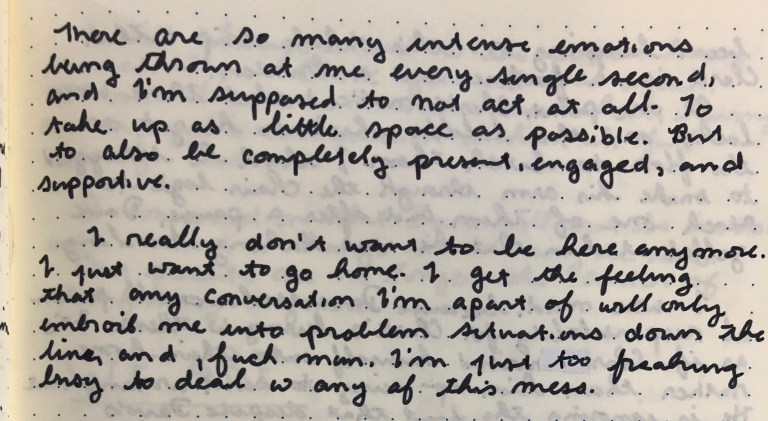 There are so many intense emotions
being thrown at me every single second,
and I'm supposed to not act at all. To
take up as little space as possible. But
to also be completely present, engaged, and
supportive.
I really don't want to be here anymore.
I just want to go home. I get the feeling
that any conversation I'm apart of will only
embroil me into problem situations down the
line, and, fuck man. I'm just too freaking
busy to deal w any of this mess.